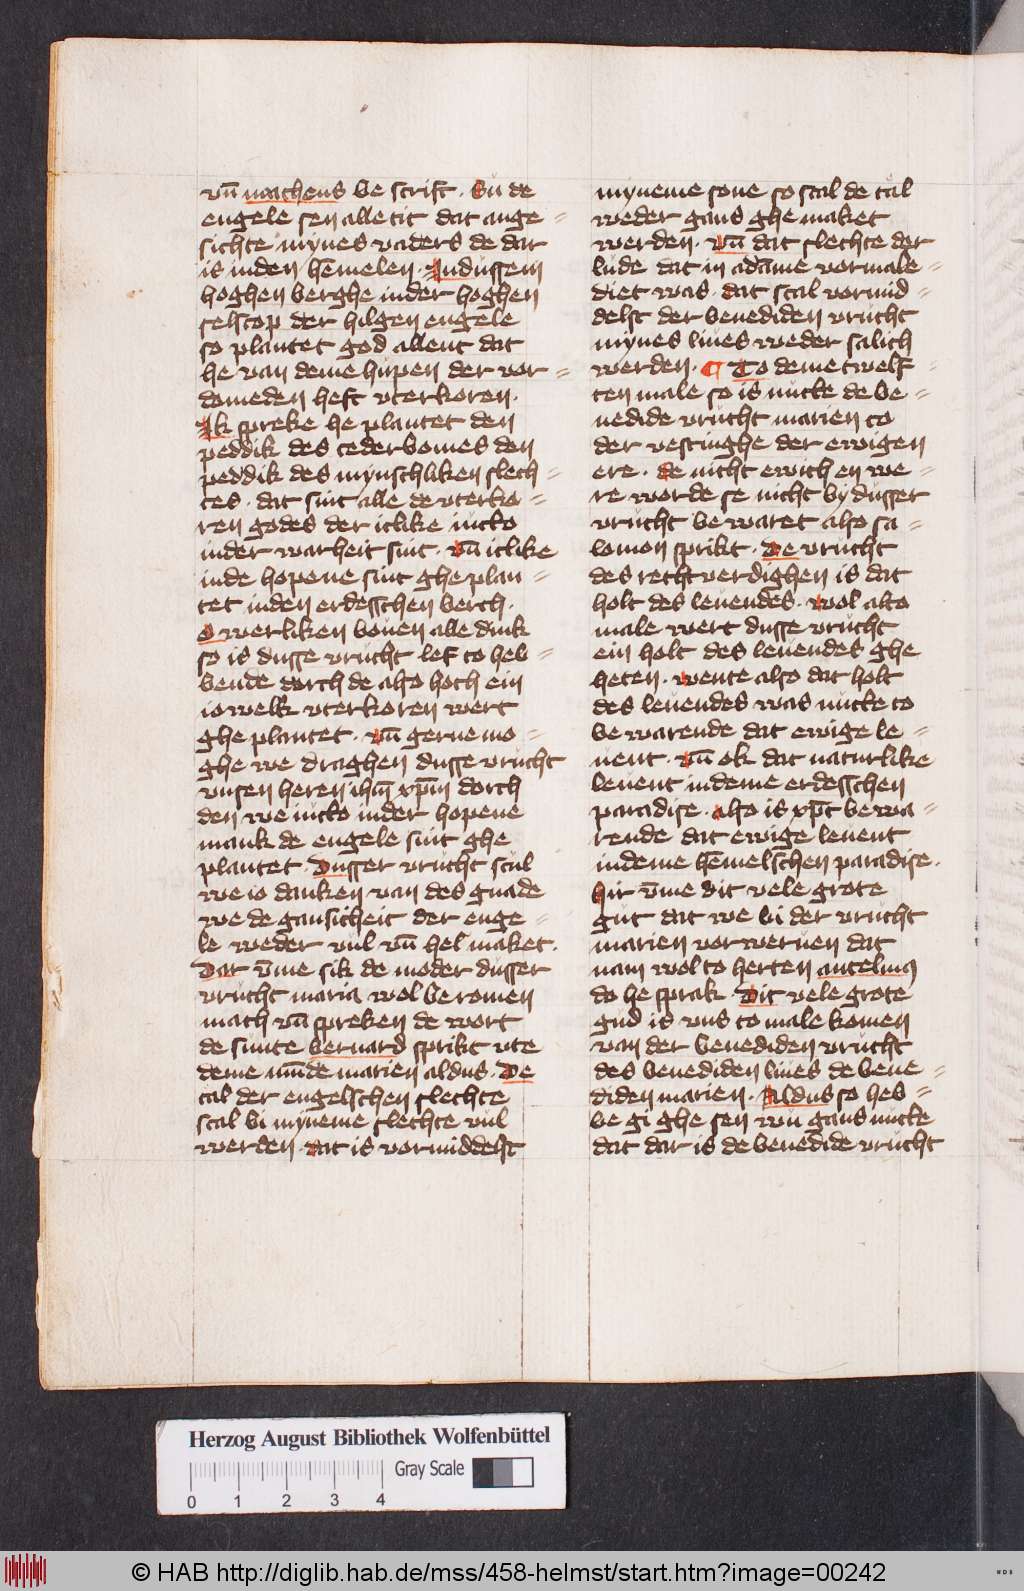 vn̄ matheus be scrift. Su de
engele sen alle tit dat ange=
sichte mynes vaders de dar
is in den hēmelen. In dussem
hoghen berghe in der hoghen
selscop der hilgen engele
so plantet god allent dat
he van deme hupen der vor=
domeden heft vterkoren.
Ik spreke he plantet den
peddik des cederbomes den
peddik des mynschliken slech=
tes. dat sint alle de vterko=
ren godes der itlike iucto
in der warheit sint. vn̄ itlike
in de hopene sint ghe plan=
tet in den erdesschen berch.
O werliken bouen alle dink
so is dusse vrucht lef to heb=
bende dorch de also hoch ein
iowelk vterkoren wert
ghe plantet. vn̄ gerne mo=
ghe we draghen dusse vrucht
vnsen heren ihm̄ xp̄m dorch
den we iucto in der hopene
mank de engele sint ghe
plantet. Dusser vrucht scul
we io danken van des gnade
we de gansicheit der enge=
le weder vul vn̄ hel maket.
Dar v̄me sik de moder dusser
vrucht maria wol beromen
mach vn̄ spreken de wort
de sunte bernard sprikt vte
deme mūde marien aldus. De
tal der engelschen slechte
scal bi myneme slechte vul
werden. dat is vormiddelst
myneme sone so scal de tal
weder gans ghe maket
werden. vn̄ dat slechte der
lude dat in adāme vormale=
diet was. dat scal vormid=
delst der benediden vrucht
mynes liues weder salich
werden. ¶ To deme twelf=
ten male so is nutte de be=
nedide vrucht marien to
der vestinghe der ewigen
ere. de nicht ewich en we=
re worde se nicht by dusser
vrucht be waret also sa=
lomon sprikt. De vrucht
des rechtuerdighen is dat
holt des leuendes. wol alto
male wert dusse vrucht
ein holt des leuendes ghe
heten. wente also dat holt
des leuendes was nutte to
be warende dat ewige le=
uent. vn̄ ok dat naturlike
leuent in deme erdesschen
paradise. also is xp̄c bewa=
rende dat ewige leuent
in deme hēmelschen paradise.
Hir v̄me dit vele grote
gut dat we bi der vrucht
marien vorweruen dat
nam wol to herten antelmꝯ
do he sprak. Dit vele grote
gud is vns to male komen
van der benediden vrucht
des benediden liues de bene=
diden marien. Aldus so heb=
be gi ghe sen wu gans nutte
dat dar is de benedide vrucht
Herzog August Bibliothek Wolfenbüttel
Gray Scale
0 1 2 3 4
© HAB http://diglib.hab.de/mss/458-helmst/start.htm?image=00242